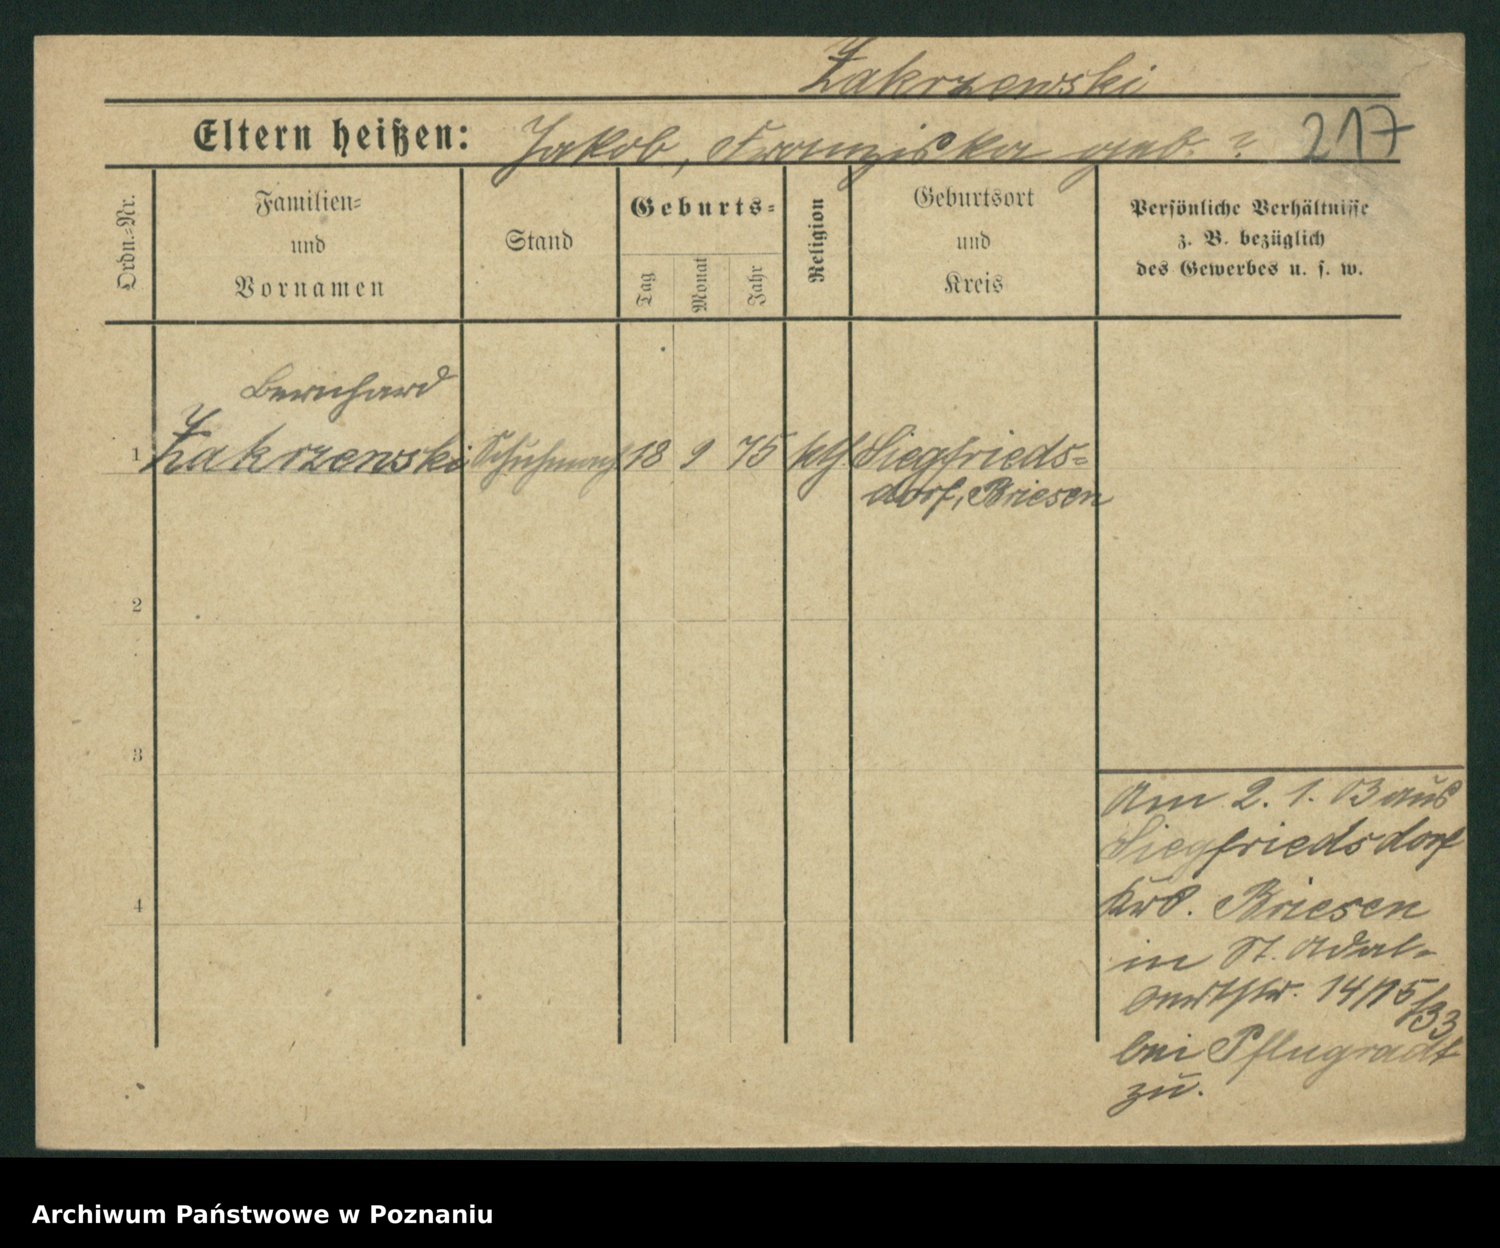 Zakrzewski
Eltern heißen: Jakob, Franziska geb. ? 217
Ordn.-Nr.
Familien-
und
Vornamen
Stand
Geburts-
Tag
Monat
Jahr
Religion
Geburtsort
und
Kreis
Persönliche Verhältnisse
z. B. bezüglich
des Gewerbes u. s. w.
Bernhard
1 Zakrzewski Schuhmach 18 9 75 kth Siegfrieds-
dorf, Briesen
2
3
4
Am 2. 1. 03 aus
Siegfriedsdorf
Krs. Briesen
in St. Adal-
bertstr. 14/15/33
bei Pflugradt
zu.
Archiwum Państwowe w Poznaniu